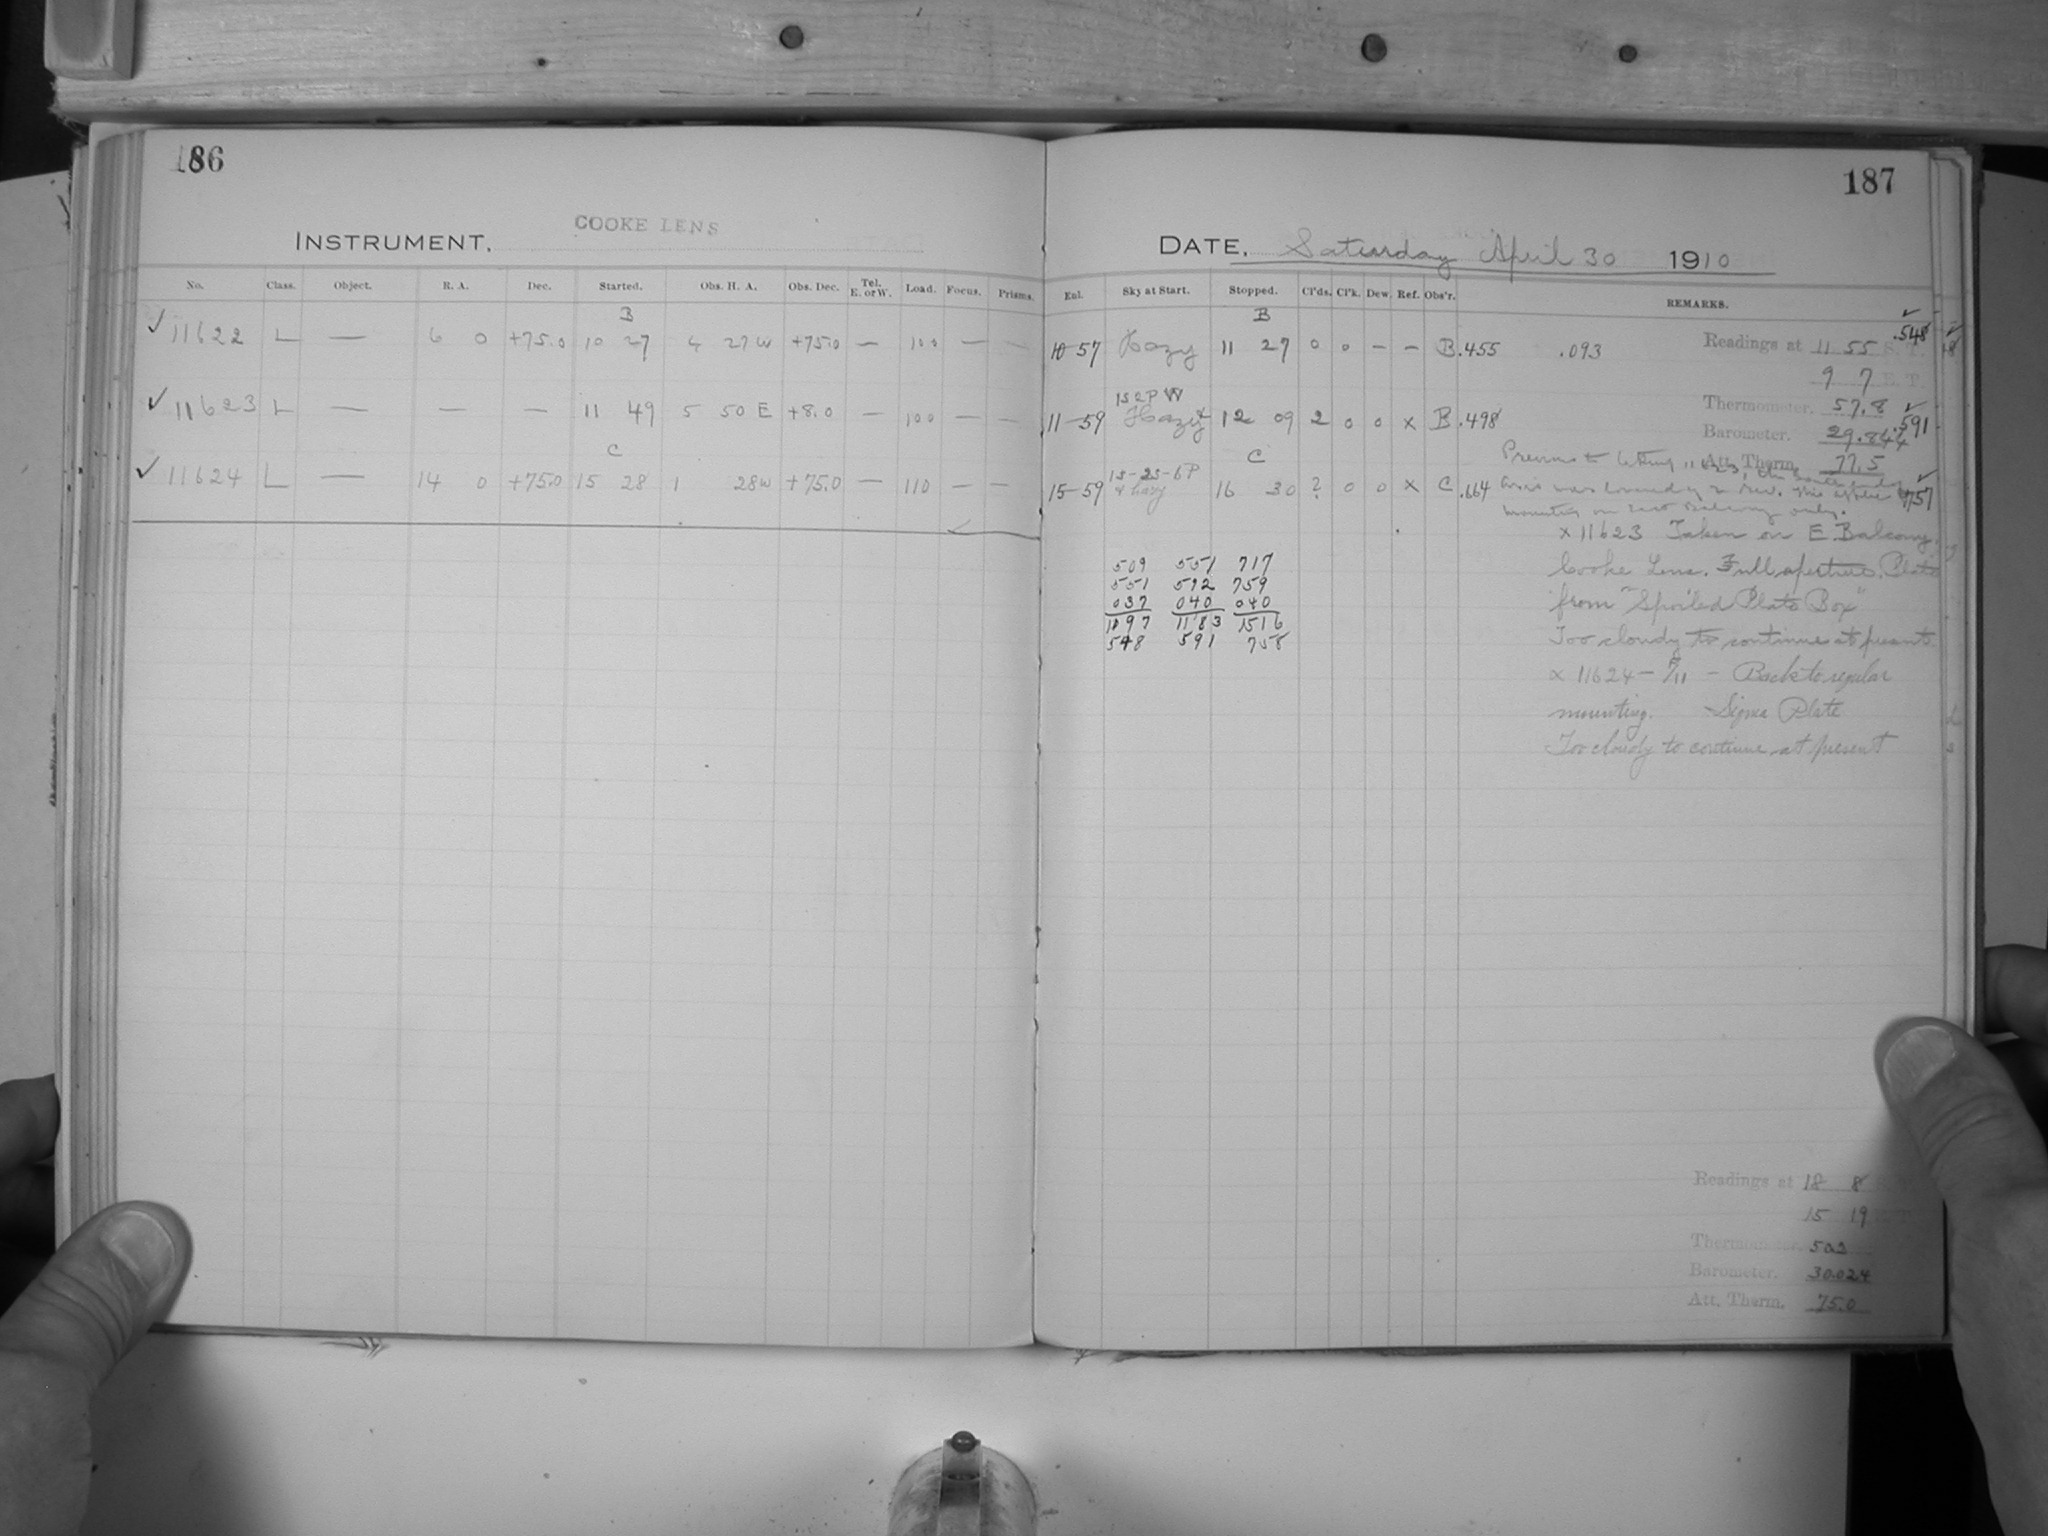 186
INSTRUMENT, COOKE LENS
No. Class. Object. R. A. Dec. Started. Obs. H. A. Obs. Dec. Tel. E. or W. Load. Focus. Prisms.
B
✓ 11622 L — 6 0 +75.0 10 27 4 27 W +75.0 — 100 — —
✓ 11623 L — — — 11 49 5 50 E +8.0 — 100 — —
C
✓ 11624 L — 14 0 +75.0 15 28 1 28 W +75.0 — 110 — —
187
DATE, Saturday April 30 1910
Exl. Sky at Start. Stopped. Cl'ds. Cl'k. Dew. Ref. Obs'r. REMARKS.
B
10-57 Hazy 11 27 0 0 — — B .455 .093
Readings at 11 55 S. T. .548
9 7 E. T.
1S 2P W
11-59 Hazy 12 09 2 0 0 x B .498
Thermometer. 57.8
.591
Barometer. 29.844
Att. Therm. 77.5
C
1S-2S-6P
15-59 & hazy 16 30 ? 0 0 x C .664
Previous to taking 11623, the south end
was in Dec. This
mounting on East Balcony only.
757
x 11623 Taken on E. Balcony.
Cooke Lens. Full aperture. Plate
from "Spoiled Plate Box"
Too cloudy to continue at present
x 11624 — F/11 — Back to regular
mounting. Sigma Plate
Too cloudy to continue at present
509 551 717
551 592 759
037 040 040
1097 1183 1516
548 591 758
Readings at 18 8
15 19
Thermometer. 50.2
Barometer. 30.024
Att. Therm. 75.0